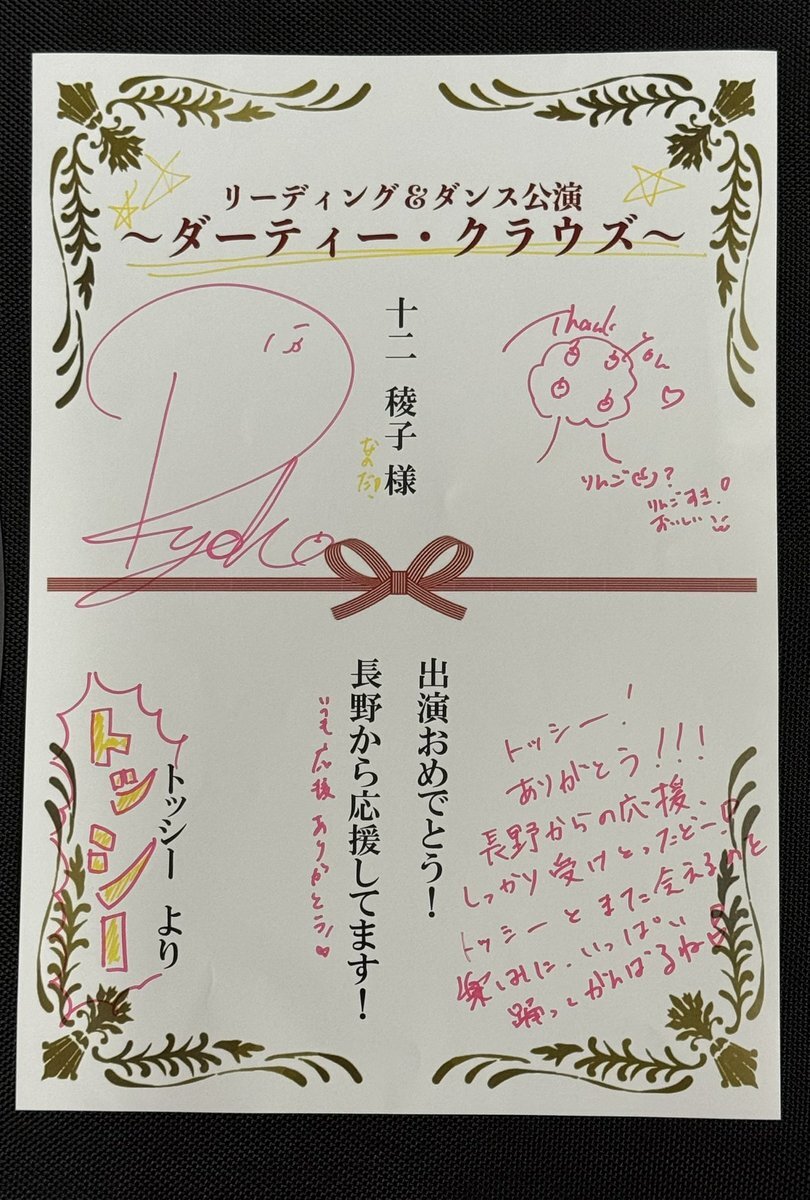 リーディング＆ダンス公演
～ダーティー・クラウズ～
十二 稜子 様
なのだ!
Ryoko
Thank you
りんご(山)?
りんごすき!
おいしい
出演おめでとう！
長野から応援してます！
いつも応援ありがとう!
トッシー より
トッシー
トッシー!
ありがとう!!!
長野からの応援、
しっかり受けとったどー!
トッシーとまた会えるのを
楽しみに、いっぱい
踊ってがんばるね